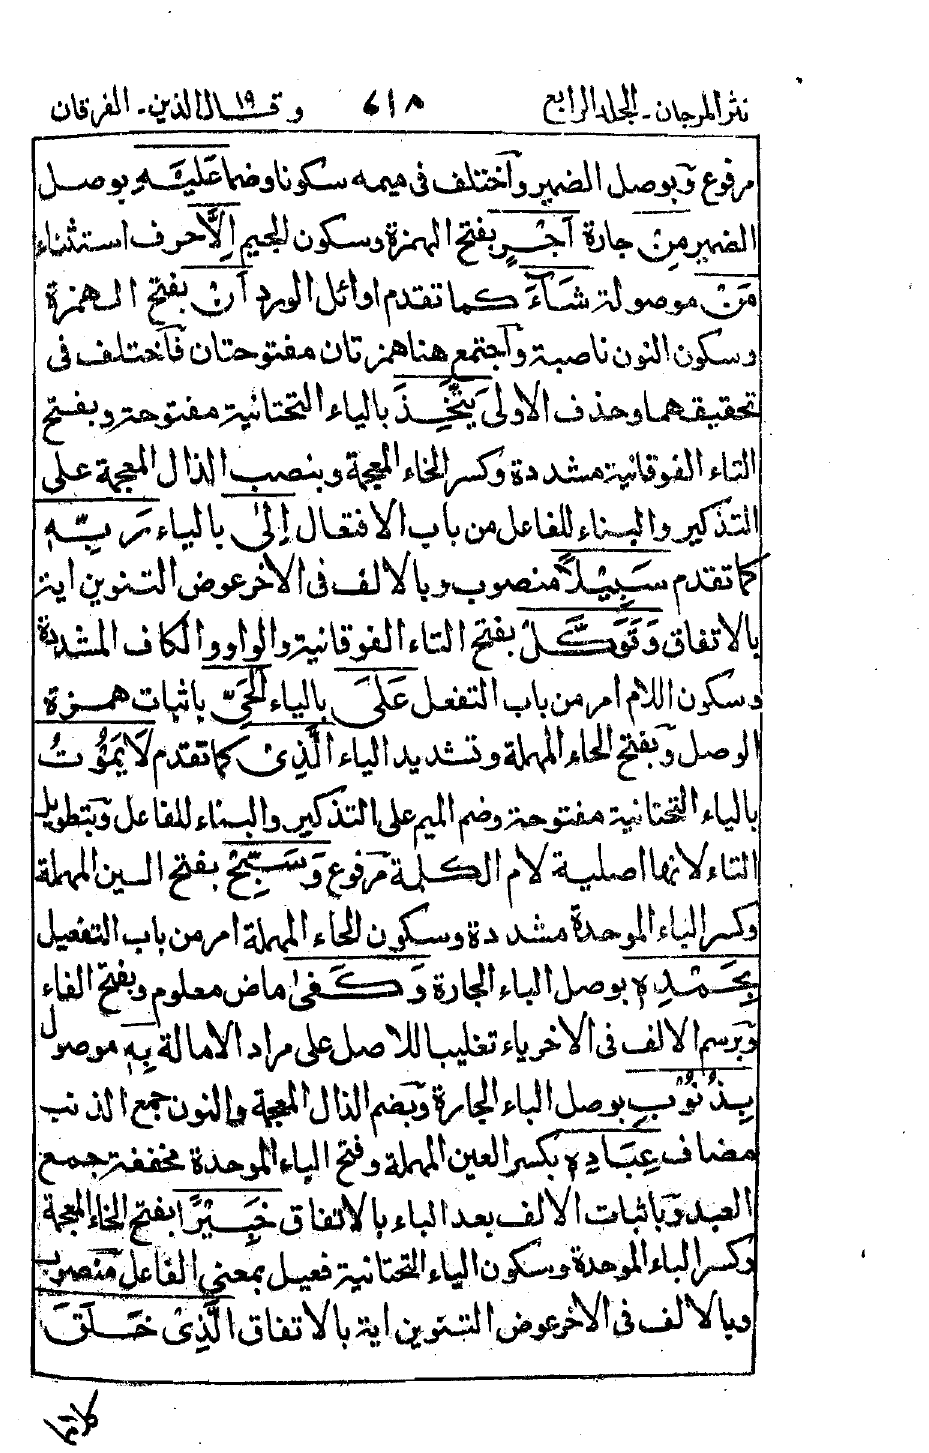 نثر المرجان - المجلد الرابع ٦١٨ وقال الذين ١٩ - الفرقان
مرفوع وبوصل الضمير واختلف فى ميمه سكونا وضما عَلَيْهِ بوصل
الضمير مِنْ جارة اَجْرٍ بفتح الهمزة وسكون الجيم اِلَّا حرف استثناء
مَنْ موصولة شَآءَ كما تقدم اوائل الورد اَنْ بفتح الهمزة
وسكون النون ناصبة واجتمع هنا همزتان مفتوحتان فاختلف فى
تحقيقهما وحذف الاولى يَتَّخِذَ بالياء التحتانية مفتوحة وبفتح
التاء الفوقانية مشددة وكسر الخاء المعجمة وبنصب الذال المعجمة على
التذكير والبناء للفاعل من باب الافتعال اِلٰى بالياء رَبِّهٖ
كما تقدم سَبِيْلًا منصوب وبالالف فى الاخر عوض التنوين اية
بالاتفاق وَتَوَكَّلْ بفتح التاء الفوقانية والواو والكاف المشددة
وسكون اللام امر من باب التفعل عَلَى بالياء الْحَيِّ باثبات همزة
الوصل وبفتح الحاء المهملة وتشديد الياء الَّذِىْ كما تقدم لَا يَمُوْتُ
بالياء التحتانية مفتوحة وضم الميم على التذكير والبناء للفاعل وبتطويل
التاء لانها اصلية لام الكلمة مرفوع وَسَبِّحْ بفتح السين المهملة
وكسر الباء الموحدة مشددة وسكون الحاء المهملة امر من باب التفعيل
بِحَمْدِهٖ بوصل الباء الجارة وَكَفٰى ماض معلوم وبفتح الفاء
وبرسم الالف فى الاخر ياء تغليبا للاصل على مراد الامالة بِهٖ موصول
بِذُنُوْبِ بوصل الباء الجارة وبضم الذال المعجمة والنون جمع الذنب
مضاف عِبَادِهٖ بكسر العين المهملة وفتح الباء الموحدة مخففة جمع
العبد وباثبات الالف بعد الباء بالاتفاق خَبِيْرًا بفتح الخاء المعجمة
وكسر الباء الموحدة وسكون الياء التحتانية فعيل بمعنى الفاعل منصوب
وبالالف فى الاخر عوض التنوين اية بالاتفاق الَّذِىْ خَلَقَ